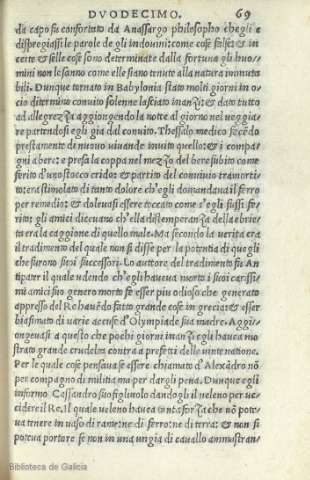 DVODECIMO. 69
da capo fu confortato da Anassargo philosopho ch'egli e
dispregiassi le parole de gli indouini: come cose false: & in
certe & selle cose sono determinate dalla fortuna gli huo/
mini non le sanno come elle siano tenute alla natura immuta
bili. Dunque tornato in Babylonia stato molti giorni in o/
cio ditermino conuito solenne lasciato inanzi: & dato tutto
ad allegrezza aggiongendo la notte al giorno nel ueggia/
re partendosi egli gia dal conuito. Thessalo medico secõdo
prestamento di nuouo uiuande inuito quello: & i compa/
gni a bere: e presa la coppa nel mezzo del bere subito come
ferito d'uno stocco grido: & partito del conuiuio tramorti/
to: era stimolato di tanto dolore ch'egli domandaua il ferro
per remedio: & doleuasi essere toccato come s'egli fussi fer/
rito: gli amici diceuano ch'ella distemperanza della ebrie/
ta era la caggione di quello male. Ma secondo la uerita era
il tradimento del quale non si disse per la potentia di quegli
che furono suoi successori. Lo auttore del tradimento fu An
tipater il quale uedendo ch'egli haueua morto i suoi carissi/
mi amici suo genero morto se esser piu odioso che generato
appresso del Re hauẽdo fatto grande cose in grecia: & esser
biasimato di uarie accuse d'Olympiade sua madre. Aggi/
ongeuasi a questo che pochi giorni inanzi egli hauea mo
strato grande crudelta contra a prefetti delle uinte natione.
Per le quale cose pensaua se essere chiamato d'Alexãdro nõ
per compagno di militia ma per dargli pena. Dunque egli
informo Cassandro suo figliuolo dandogli il ueleno per uc/
cidere il Re. Il quale ueleno hauea tanta forza che nõ pote/
ua tenere in uaso di rame: ne di ferro: ne di terra: & non si
poteua portare se non in una ungia di cauallo ammaestran/
Biblioteca de Galicia